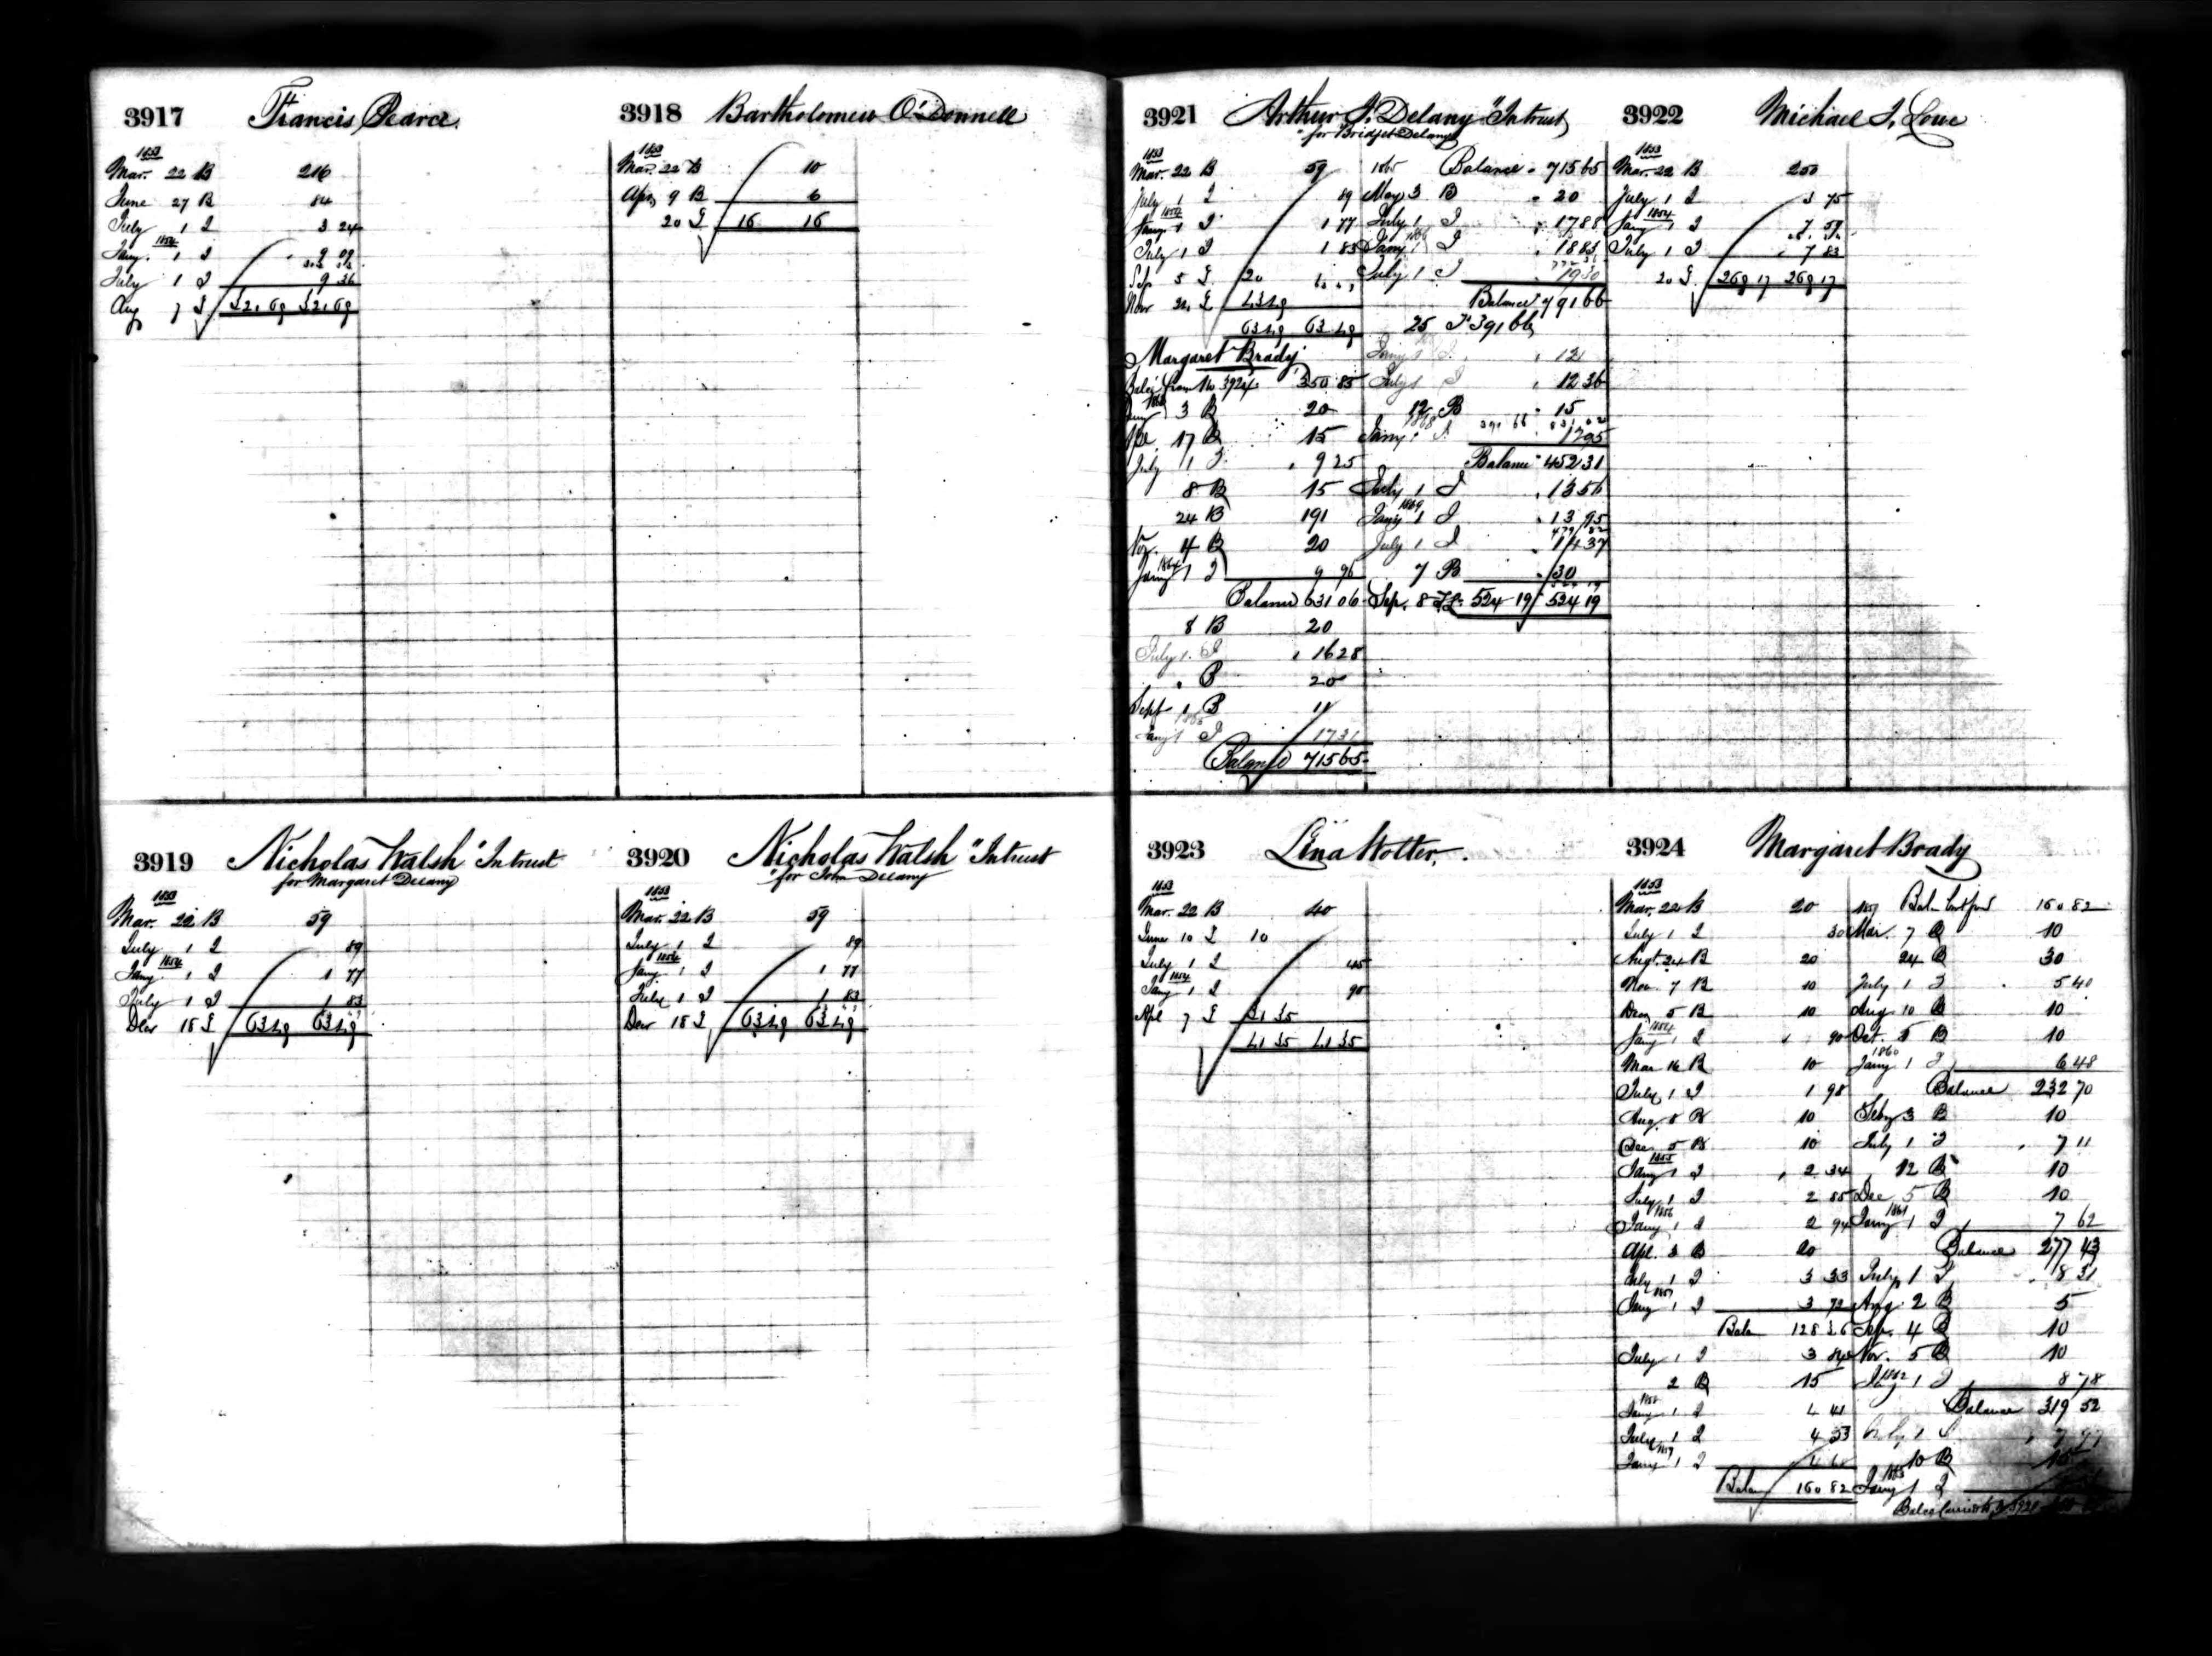 3917 Francis Pearce
1853
Mar. 22 B 216
June 27 B 84
July 1 I 3 24
1854
Jany. 1 I 9 09
July 1 I 9 36
Aug 7 I 321.69 321.69
3918 Bartholomew O'Donnell
1853
Mar. 22 B 10
Apr. 9 B 6
20 I 16 16
3919 Nicholas Walsh "Intrust
for Margaret Delany
1853
Mar. 22 B 59
July 1 I 89
1854
Jany 1 I 1 77
July 1 I 1 83
Decr 18 I 63 49 63 49
3920 Nicholas Walsh "Intrust
"for John Delany
1853
Mar. 22 B 59
July 1 I 89
1854
Jany 1 I 1 77
July 1 I 1 83
Decr 18 I 63 49 63 49
3921 Arthur J. Delany "Intrust
"for Bridget Delany
1853
Mar. 22 B 59
July 1 I 89
1854
Jany 1 I 1 77
July 1 I 1 83
Sep 5 I 20
Nov 22 I 43 49
63 49 63 49
Margaret Brady
Balce from No 3924 350 85
3 B 20
Apl 17 B 15
July 1 I 9 25
8 B 15
24 B 191
Nov. 4 B 20
Jany 1864 1 I 9 96
Balance 631 06
8 B 20
July 1 I 16 28
" B 20
Sept 1 B 11
1865
Jany 1 I 17 31
Balance 715 65
1865 Balance 715 65
May 3 B 20
July 1 I 17 88
Jany 1866 1 I 18 83
July 1 I 19 30
Balance 791 66
25 I 391 66
Jany 1 I 12
July 1 I 12 36
12 B 15
1868
Jany 1 I 391 66 12 95
Balance 452 31
July 1 I 13 56
1869
Jany 1 I 13 95
479 82
July 1 I 14 37
7 B 30
Sep. 8 I 524 19 524 19
3922 Michael J. Lowe
1853
Mar. 22 B 250
July 1 I 3 75
1854
Jany 1 I 7 59
July 1 I 7 83
20 I 269 17 269 17
3923 Lina Wolter.
1853
Mar. 22 B 40
June 10 I 10
July 1 I 45
1854
Jany 1 I 90
Apl 7 I 31 35
41 35 41 35
3924 Margaret Brady
1853
Mar. 22 B 20
July 1 I 30
Augt. 24 B 20
Nov. 7 B 10
Dec 5 B 10
1854
Jany 1 I 90
Mar 16 B 10
July 1 I 1 98
Aug. 8 B 10
Dec. 5 B 10
1855
Jany 1 I 2 34
July 1 I 2 85
1856
Jany 1 I 2 94
Apl. 3 B 20
July 1 I 3 33
1857
Jany 1 I 3 72
Balce 128 36
July 1 I 3 84
2 B 15
1858
Jany 1 I 4 41
July 1 I 4 53
1859
Jany 1 I
Balce 160 82
1859 Balce brt ford 160 82
Mar. 7 B 10
24 B 30
July 1 I 5 40
Aug 10 B 10
Oct. 5 B 10
1860
Jany 1 I 6 48
Balance 232 70
Feby 3 B 10
July 1 I 7 11
12 B 10
Dec 5 B 10
1861
Jany 1 I 7 62
Balance 277 43
July 1 I 8 31
Aug. 2 B 5
Sep. 4 B 10
Nov. 5 B 10
1862
Jany 1 I 8 78
Balance 319 52
July 1 I
10 B 15
1863
Jany 1 I
Balce Carried to 3921